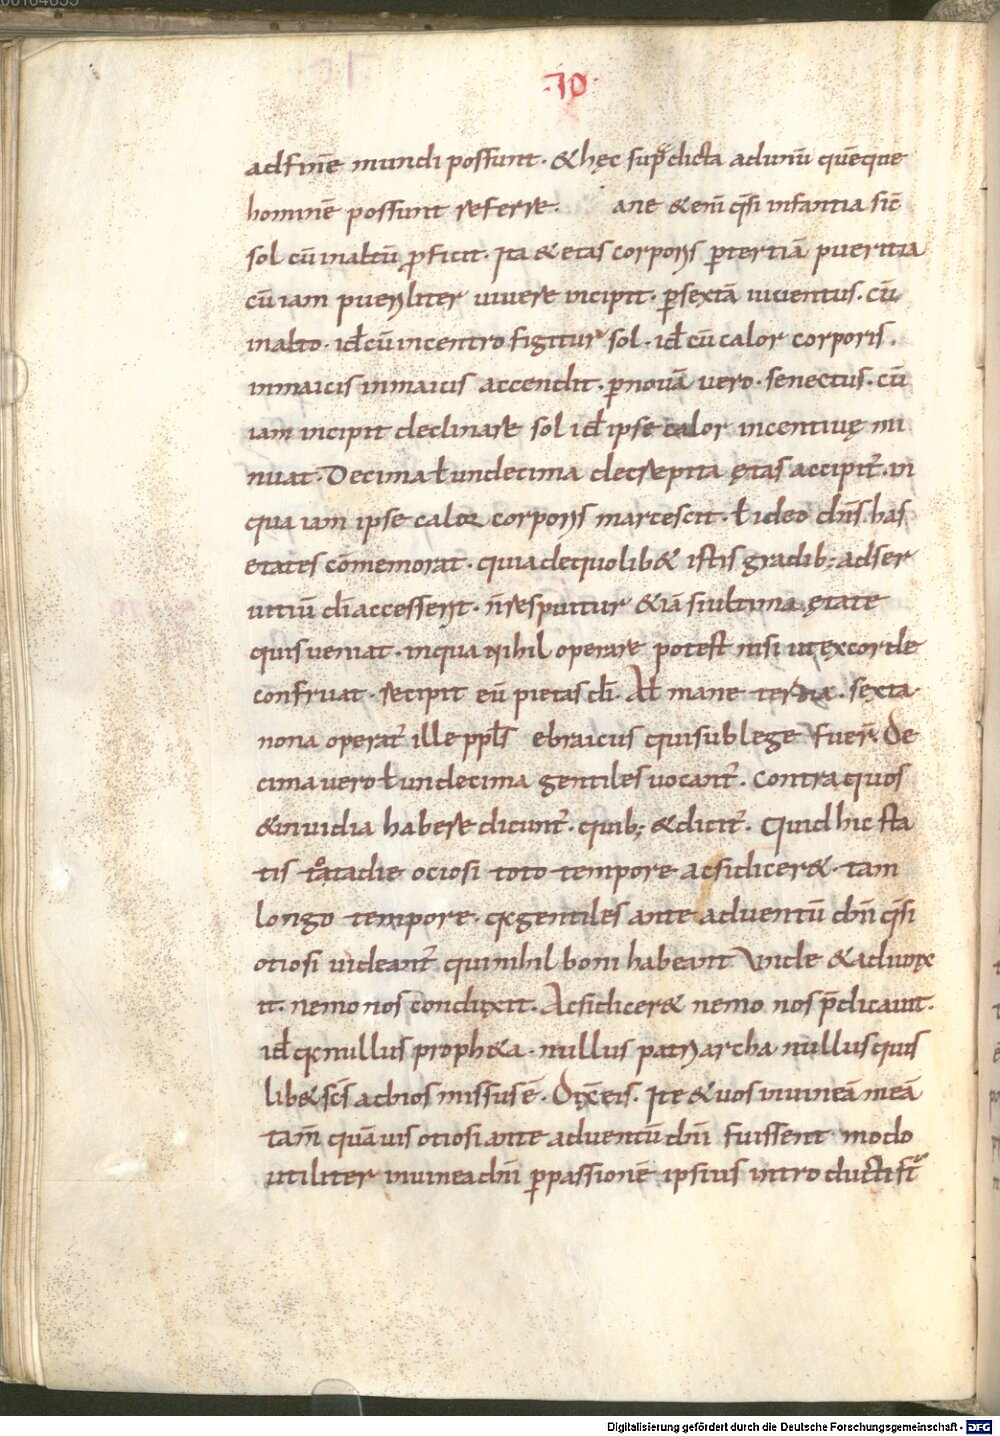 ·70·
adfinē mundi possunt· &hęc sup̄dicta adunū quēque
hominē possunt referre. ane &eni̅ q̅si infantia sic̅
sol cu̅inaltu̅ p̅ficit· Ita &etas corporis p̅tertiā pueritia
cu̅iam pueriliter uiuere incipit· p̅sextā iuuentus· cu̅
inalto· id̅ cu̅incentro figitur sol· id̅ cu̅calor corporis·
inmaicis inmaicis accendit· p̅nouā uero· senectus· cu̅
iam incipit declinare sol id̅ ipse calor incentiuę mi
nuat· Decima ł undecima decrepita ętas accipit̅· in
qua iam ipse calor corporis marcescit· ł ideo dn̅s has
etates co̅memorat· quiadequolib& istis gradib; adser
uitiu̅ di̅accesserit· n̅respuitur &iā siultima ętate
quisueniat· inqua nihil operare potest nisi utexcorde
confruat· recipit eu̅ pietas di̅· Ad mane tertia· sexta·
nona operat̅ ille ppl̅s ebraicus quisublege fuer̅· De
cima uero ł undecima gentiles uocant̅· contraquos
&inuidia habere dicunt̅· quib; &dicit̅· Quid hic sta
tis totadie ociosi toto tempore acsidicer& tam
longo tempore· q̅gentiles ante aduentu̅ dn̅i q̅si
otiosi uideant̅ quinihil boni habeant Vnde &aduox
it· nemo nos conduxit· Acsidicer& nemo nos p̅dicauit·
id̅ q̅nullus proph&a· nullus patriarcha nullusquis
lib& sc̅s adnos missus ē· Dix̅ eis· Ite &uos inuineā meā
tam̅ quāuis otiosi ante aduentu̅ dn̅i fuissent modo
utiliter inuinea dn̅i p̅passionē ipsius intro ducti st̅
Digitalisierung gefördert durch die Deutsche Forschungsgemeinschaft - DFG